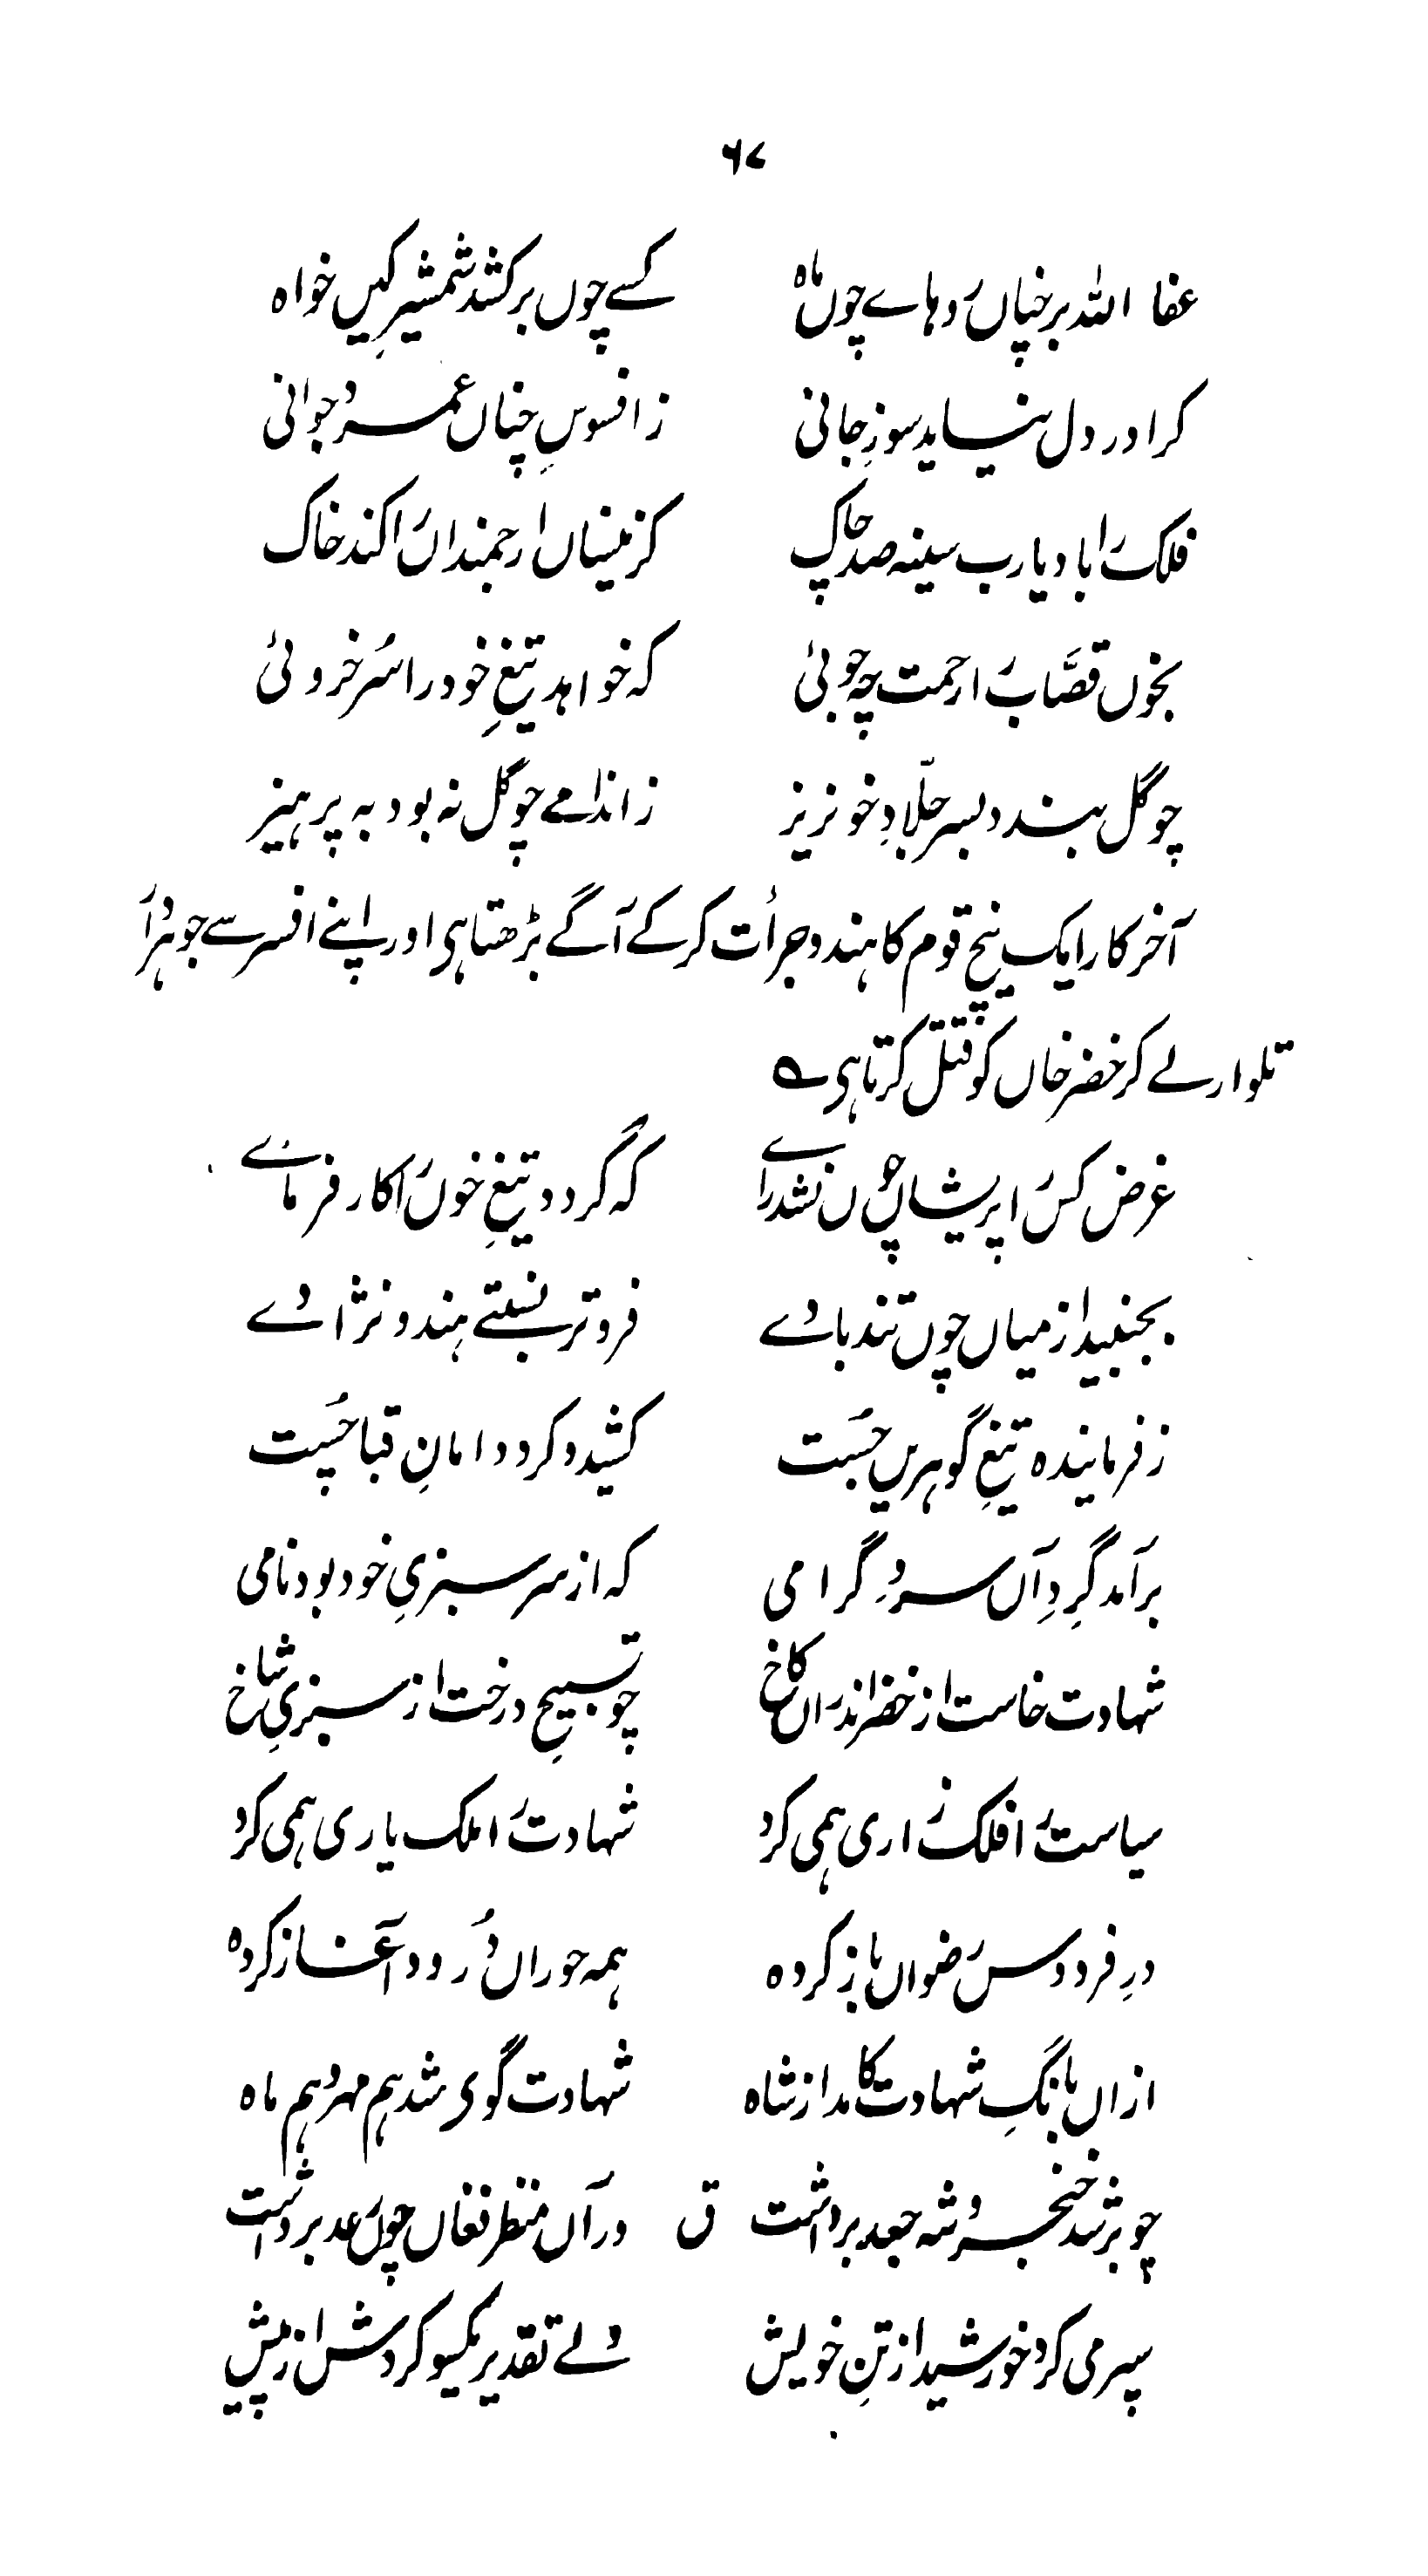 ۶۷
عفا اللہ بر چناں روہاے چوں ماہ کسے چوں برکشد شمشیرِ کیں خواہ
کرا در دل نیاید سوزِ جانی ز افسوسِ چناں عمر و جوانی
فلک را باد یارب سینہ صد چاک کزینساں ارجمنداں را کند خاک
بخوں قصّاب را رحمت چہ جوئی کہ خواہد تیغِ خود را سُرخ روئی
چو گل بندد بسر جلّادِ خونریز ز اندامے چو گل نہ بود بہ پرہیز
آخر کار ایک نیچ قوم کا ہندو جرأت کرکے آگے بڑھتا ہی اور اپنے افسر سے جوہردار
تلوار لے کر خضر خاں کو قتل کرتا ہی ؎
غرض کس را پریشاں چوں نشد راے کہ گردد تیغِ خوں را کار فرماے
بجنبید از میاں چوں تند بادے فروتر نسبتے ہندو نژادے
ز فرمایندہ تیغِ گوہریں جُست کشید و کرد دامانِ قبا چُست
برآمد گِردِ آں سروِ گرامی کہ از سرسبزیِ خود بود نامی
شہادت خاست از خضر اندراں کاخ چو تسبیحِ درخت از سبزیِ شاخ
سیاست را فلک زاری ہمی کرد شہادت را ملک یاری ہمی کرد
درِ فردوس رضواں باز کردہ ہمہ حوراں دُرود آغاز کردہ
ازاں بانگِ شہادت کامد از شاہ شہادت گوی شد ہم مہر و ہم ماہ
چو بر شد خنجر و شہ جعد برداشت ق در آں منظر فغاں چوں رعد برداشت
سپر می کرد خورشید از تنِ خویش ولے تقدیر یکسو کردش از پیش